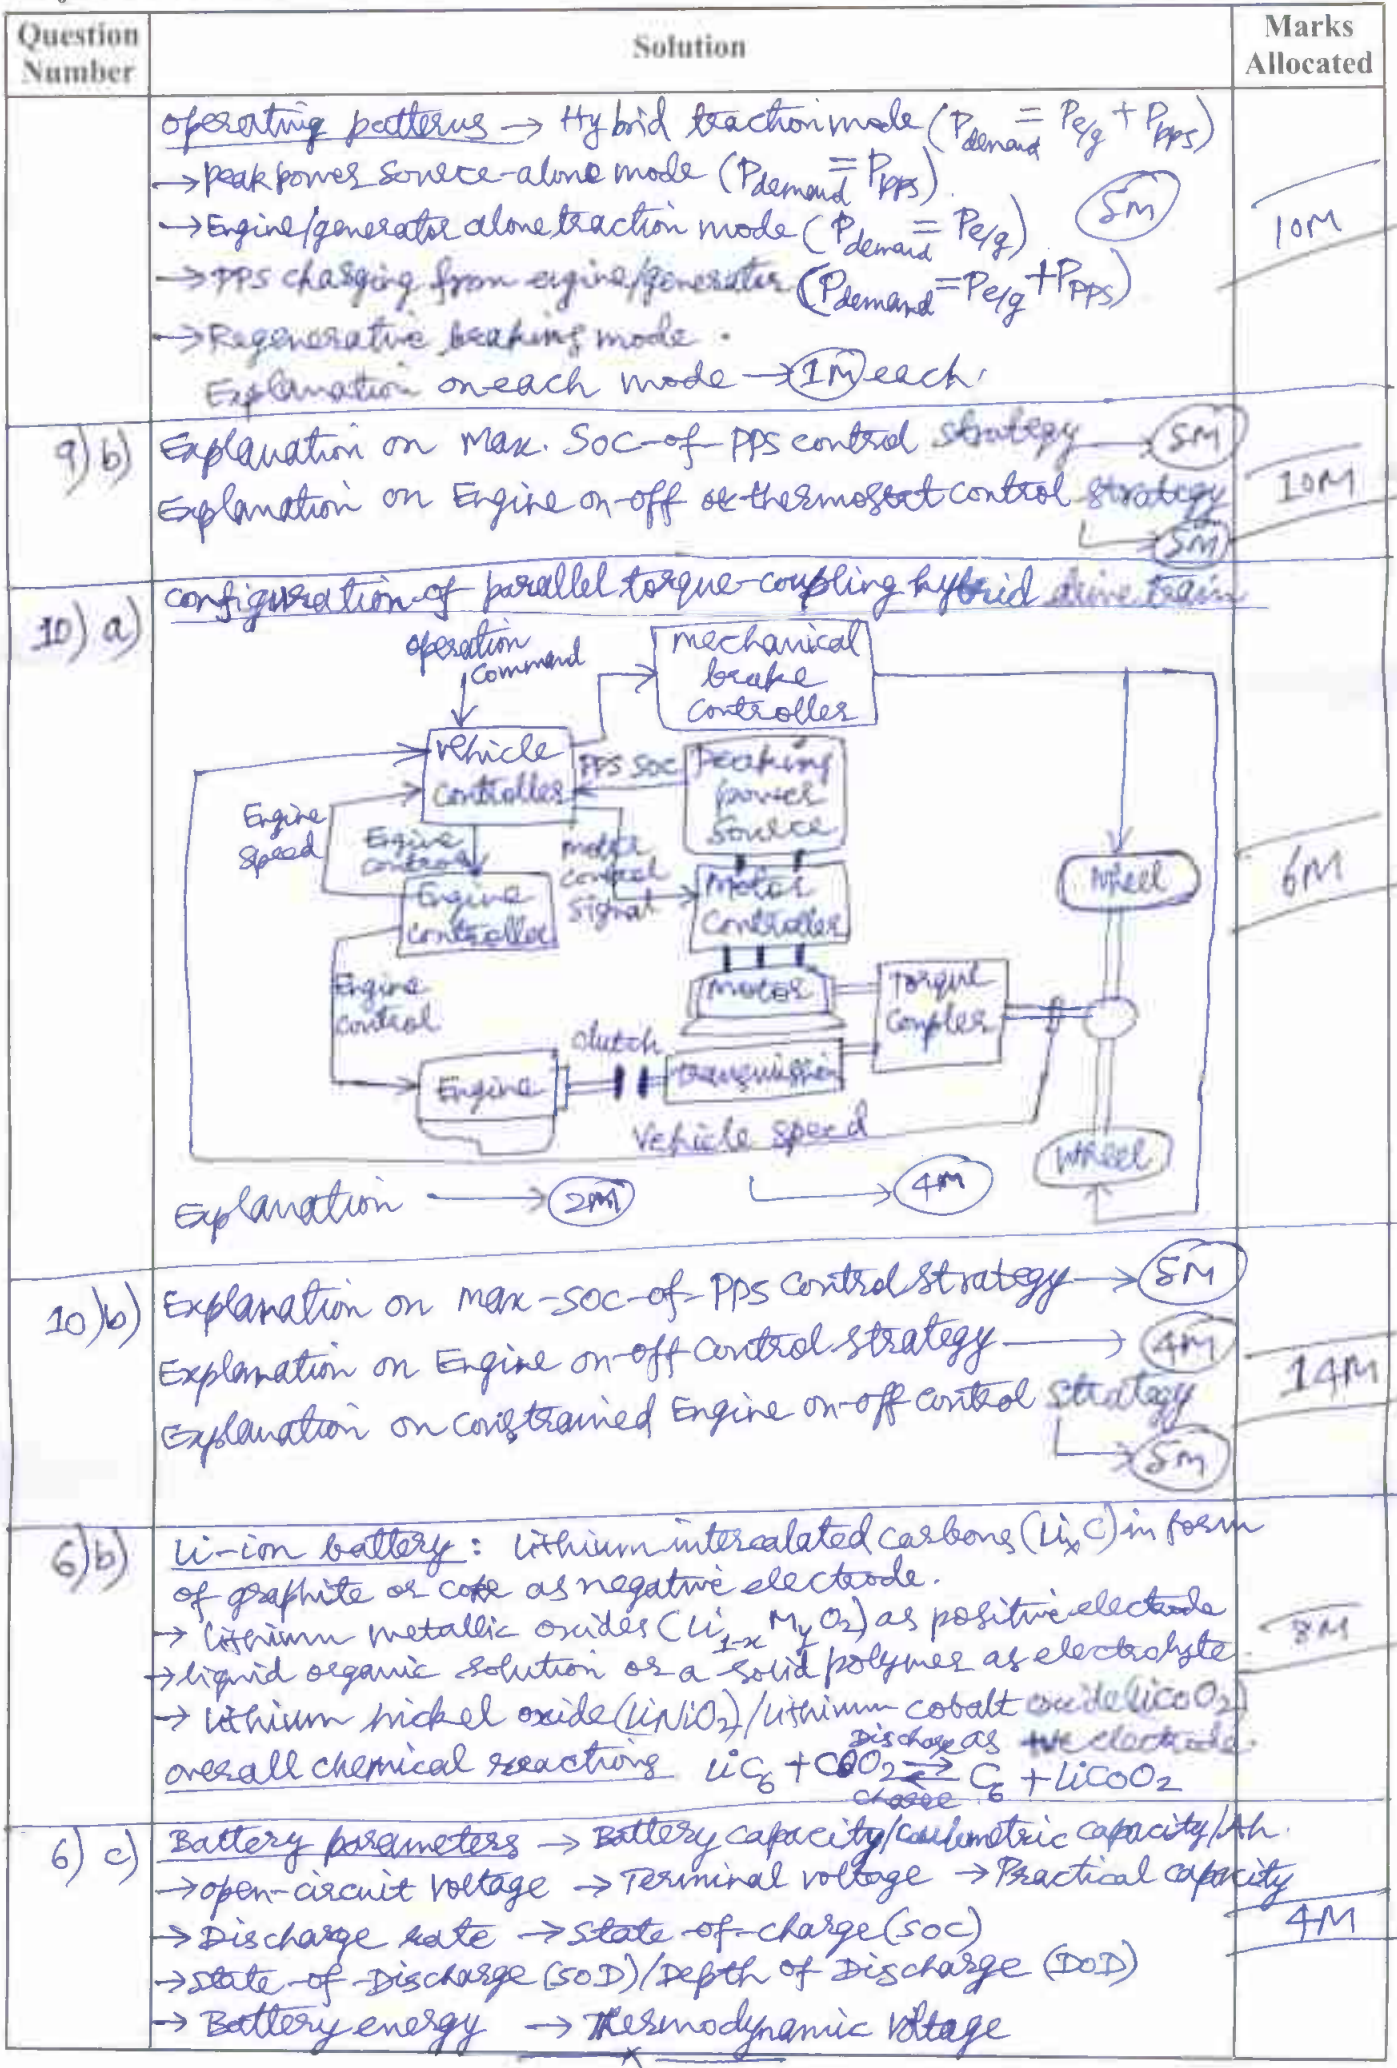 Question Number
Solution
Marks Allocated
operating patterns → Hybrid traction mode (Pdemand = Pe/g + Ppps)
→ peak power source-alone mode (Pdemand = Ppps)
→ Engine/generator alone traction mode (Pdemand = Pe/g)
5M
10M
→ PPS charging from engine/generator (Pdemand = Pe/g + Ppps)
→ Regenerative braking mode.
Explanation on each mode → 1M each.
9)b) Explanation on Max. SOC-of-PPS control strategy → 5M
Explanation on Engine on-off or thermostat control strategy
→ 5M
10M
10) a) configuration of parallel torque-coupling hybrid drive train
operation command
mechanical brake controller
vehicle controller
PPS SOC
Peaking power source
Engine speed
Engine control
motor control signal
Engine controller
Motor controller
wheel
6M
Engine control
motor
Torque coupler
clutch
Engine
transmission
Vehicle speed
wheel
Explanation → 2M
→ 4M
10)b) Explanation on max-SOC-of-PPS control strategy → 5M
Explanation on Engine on-off control strategy → 4M
Explanation on constrained Engine on-off control strategy
→ 5M
14M
6)b) Li-ion battery: Lithium intercalated carbons (LixC) in form
of graphite or coke as negative electrode.
→ Lithium metallic oxides (Li1-x My O2) as positive electrode
→ liquid organic solution or a solid polymer as electrolyte
→ Lithium nickel oxide (LiNiO2)/Lithium cobalt oxide LiCoO2)
as +ve electrode.
8M
overall chemical reactions LiC6 + CoO2 Discharge ⇌ Charge C6 + LiCoO2
6) c) Battery parameters → Battery capacity/coulometric capacity/Ah.
→ open-circuit voltage → Terminal voltage → Practical capacity
→ Discharge rate → State-of-charge (SOC)
→ State-of-Discharge (SOD)/Depth of Discharge (DOD)
→ Battery energy → Thermodynamic voltage
4M